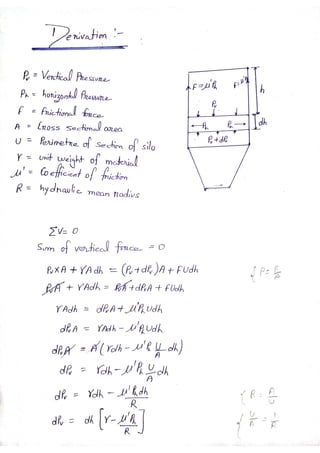 Derivation :-
Pv = Vertical Pressure
Ph = horizontal Pressure
F = Frictional force
A = Cross Sectional area
U = Perimetre of section of silo
γ = unit weight of material
μ' = Coefficient of friction
R = hydraulic mean radius
F=μ'Ph
F=μ'Ph
h
Pv
Ph
Ph
dh
Pv+dPv
ΣV= 0
Sum of vertical force = 0
Pv×A + γAdh = (Pv+dPv)A + FUdh
PvA + γAdh = PvA+dPvA + FUdh
γAdh = dPvA+μ'PhUdh
dPvA = γAdh - μ'PhUdh
dPvA = A(γdh - μ'Ph U/A dh)
dPv = γdh - μ'Ph U/A dh
dPv = γdh - μ'Ph dh/R
{ R = A/U
dPv = dh [γ - μ'Ph/R]
{ U/A = 1/R